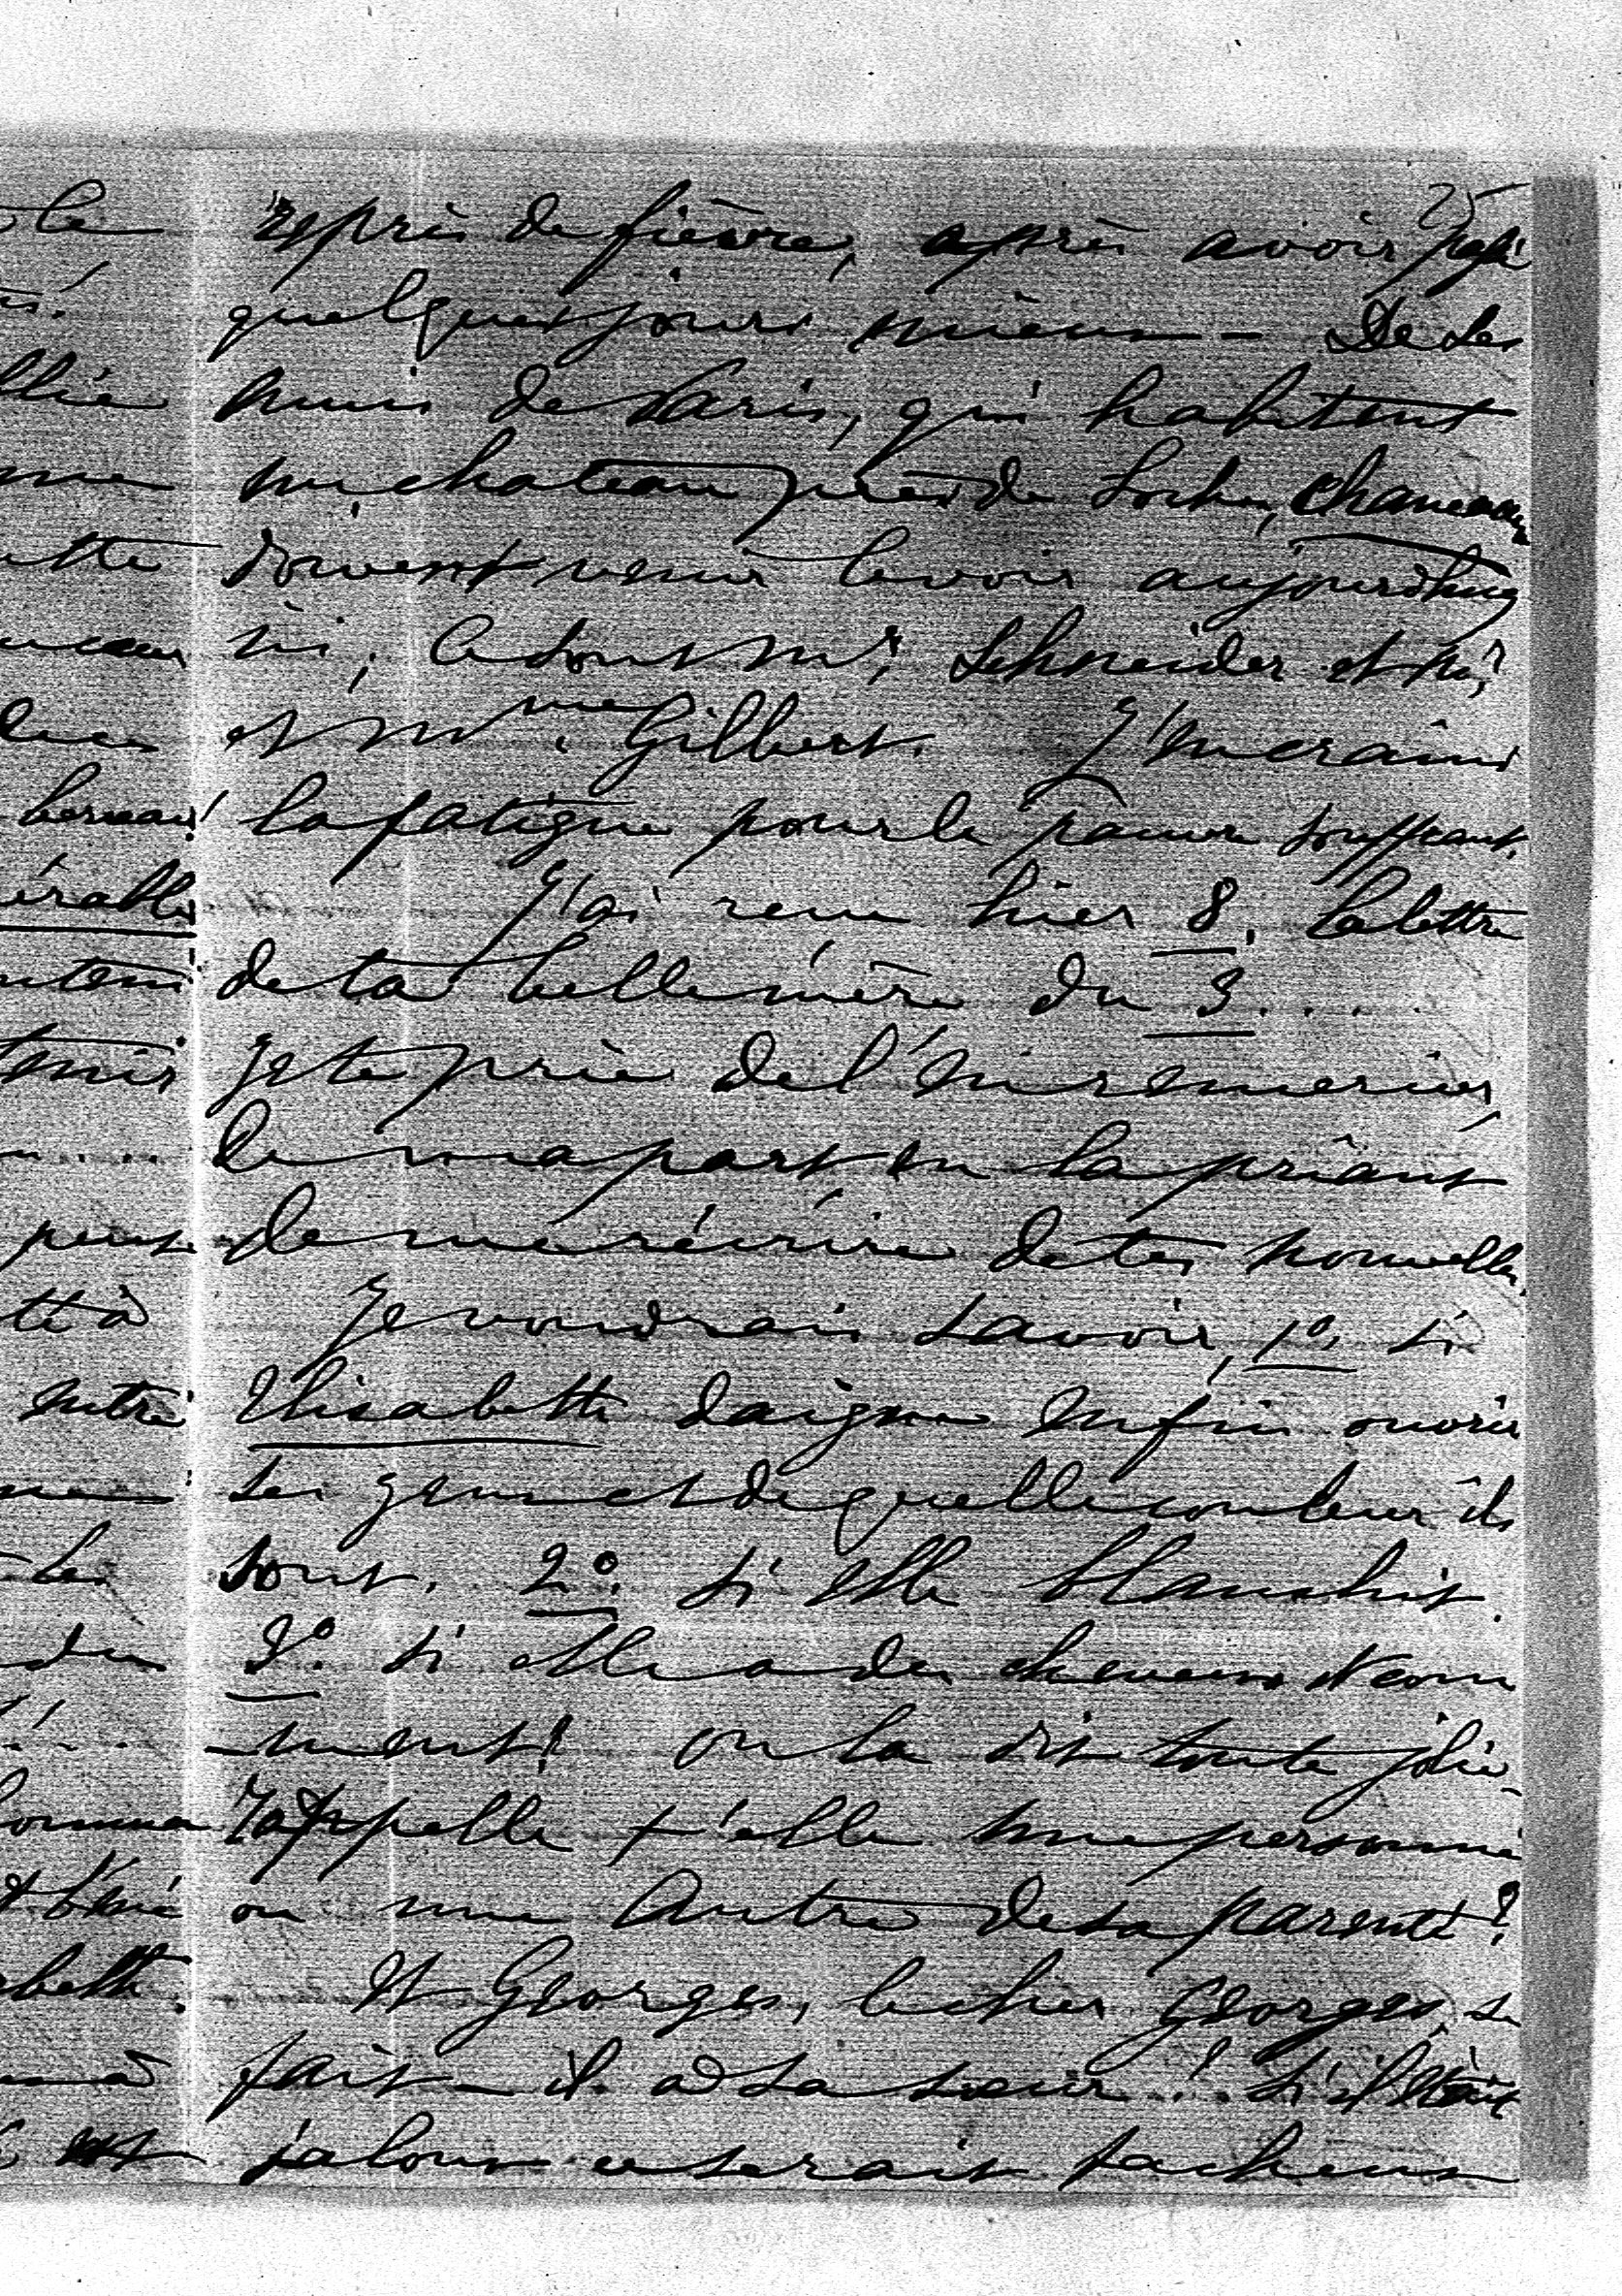 25
repris de fièvre, après avoir passé
quelques jours mieux — De ses
amis de Paris, qui habitent
un chateau près de Loches, Chanceaux
doivent venir le voir aujourd'hui
ici, ce sont Mr. Schneider et Mr.
et Mme. Gilbert. J'en crains
la fatigue pour le pauvre souffrant.
J'ai reçu hier 8, la lettre
de ta belle mère du 3....
Je te prie de l'en remercier
de ma part en la priant
de me réécrire de tes nouvelles
Je voudrais savoir, 1º, si
Elisabeth daigne enfin ouvrir
ses yeux et de quelle couleur ils
sont. 2º. si elle blanchit.
3º. si elle a des cheveux et com
-ment? on la dit toute jolie,
rappelle t'elle une personne
ou une autre de sa parenté?
Et Georges, le cher Georges, se
fait-il à sa sœur...? s'il était
jaloux ce serait facheux